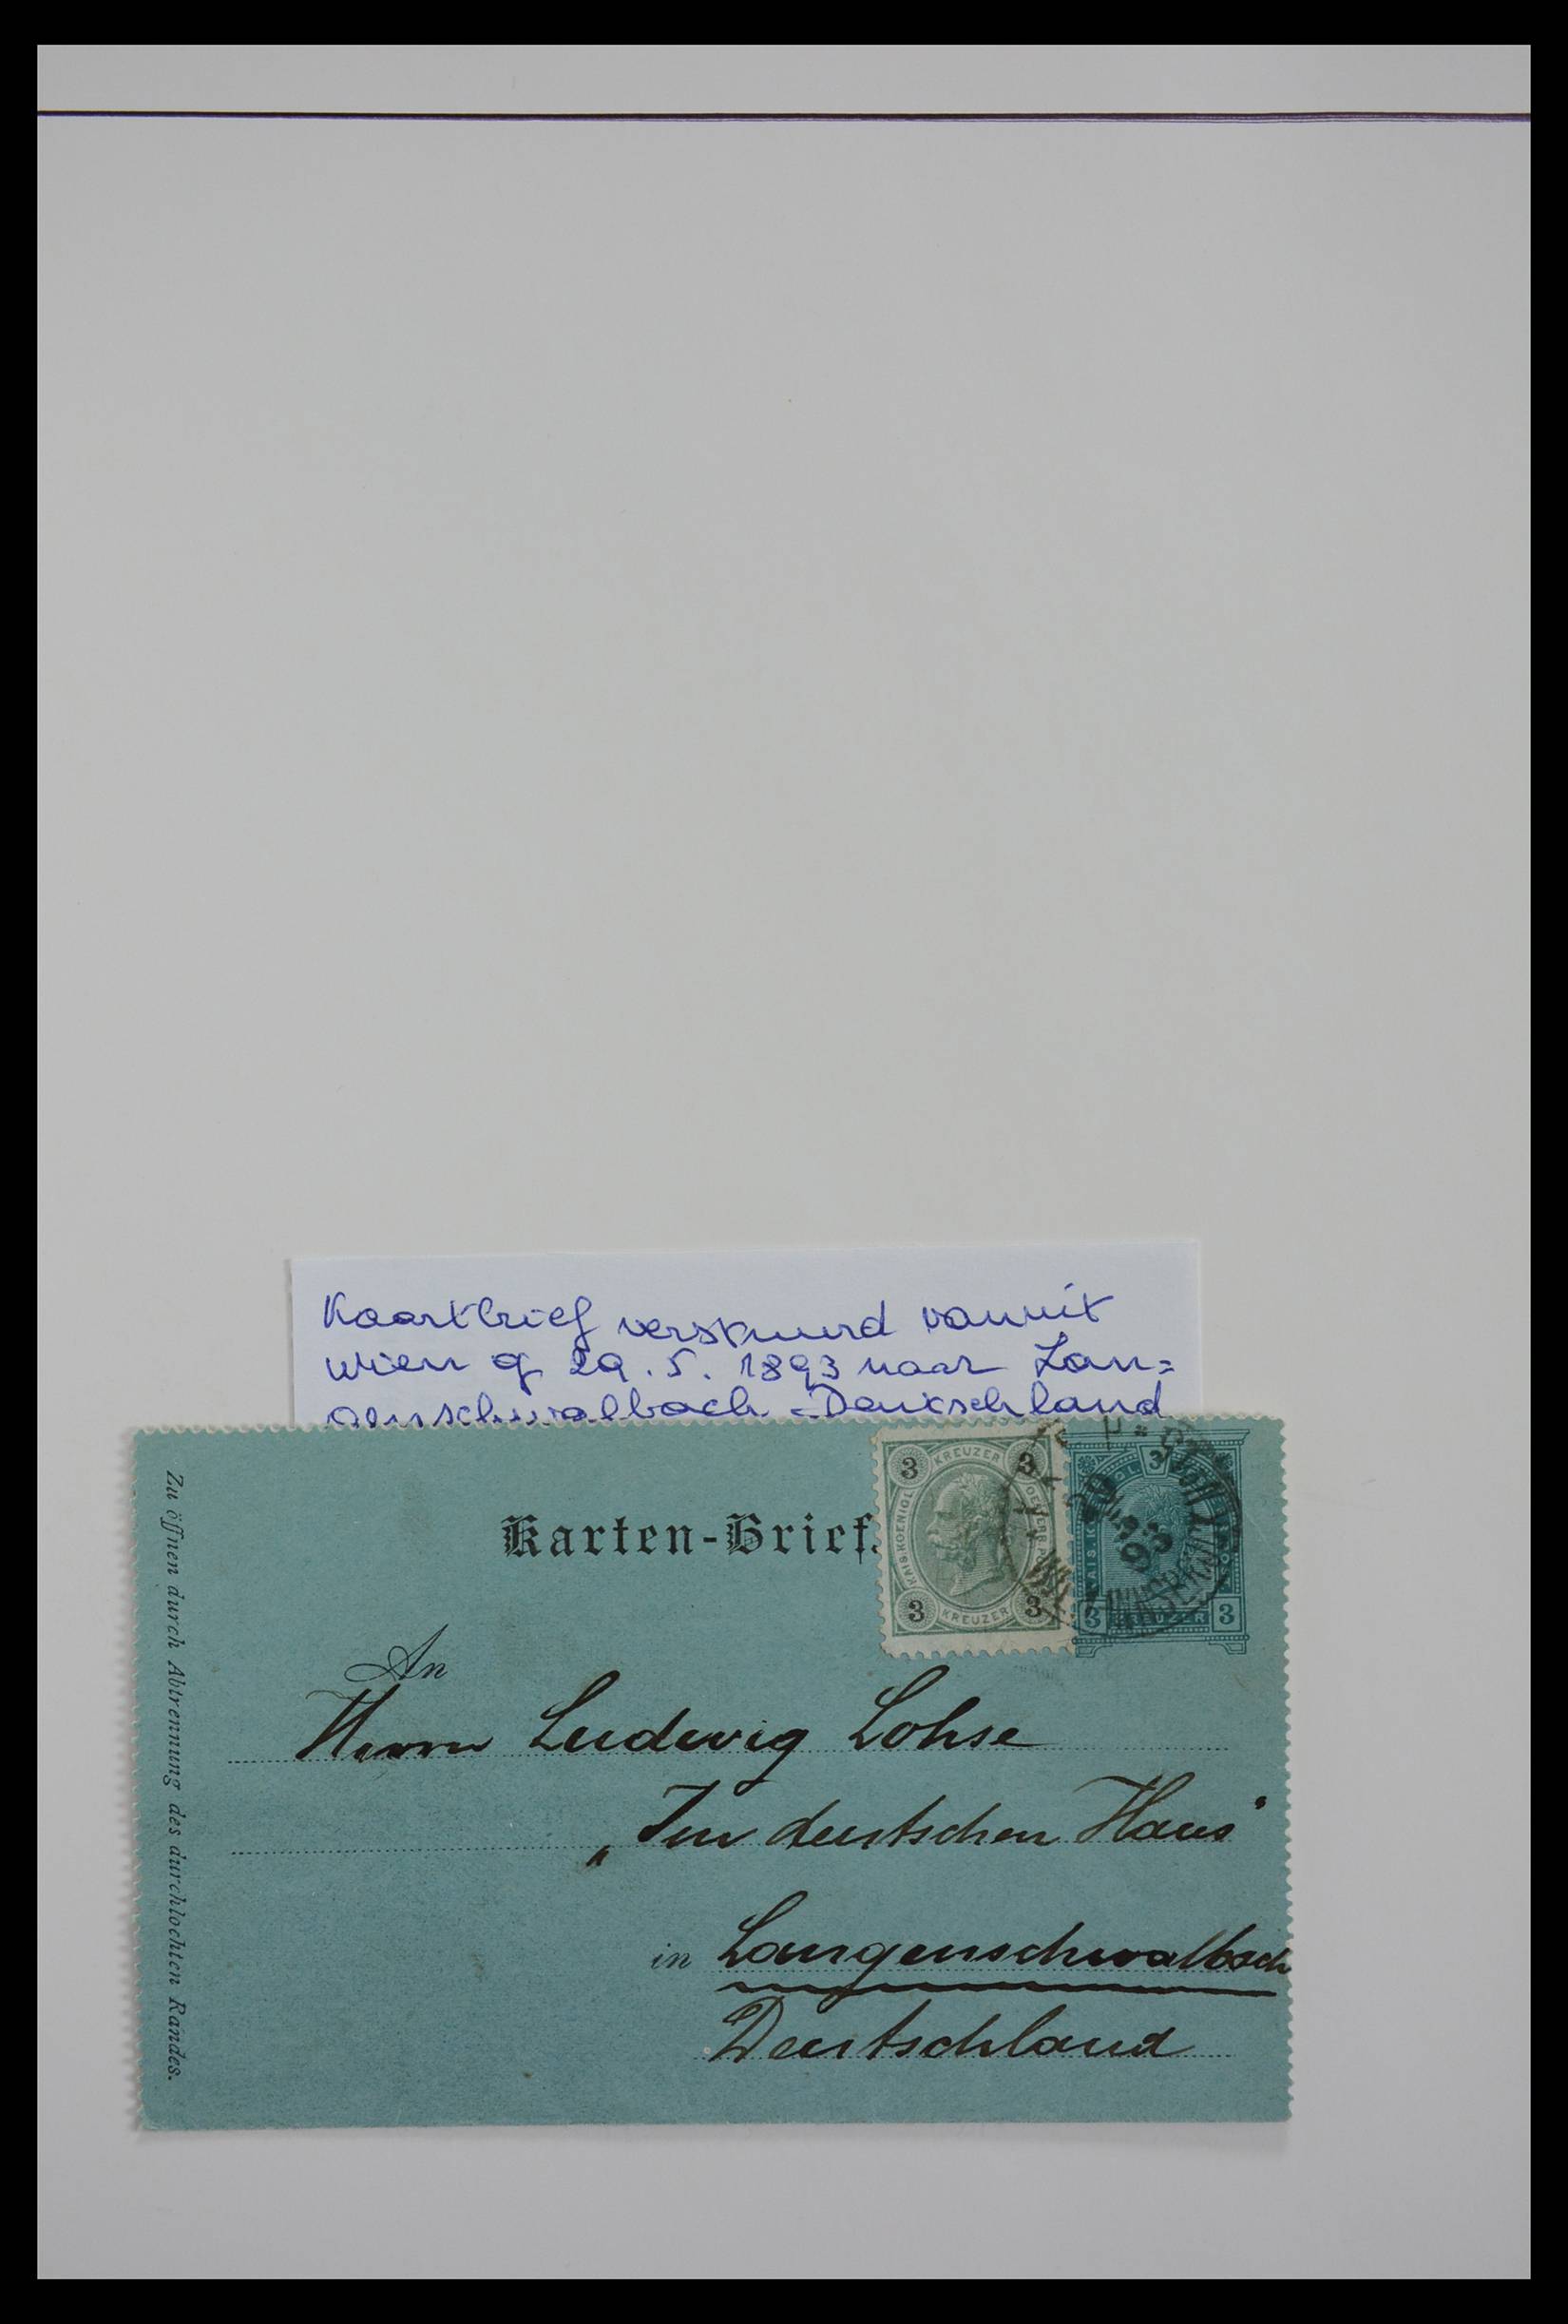 Kaartbrief verstuurd vanuit
Wien op 29.5.1893 naar Lan=
genschwalbach - Deutschland
Karten-Brief.
3 KREUZER 3
KAIS. KOENIGL.
3 KREUZER 3
3
29
5
93
3 KREUZER 3
Zu öffnen durch Abtrennung des durchlochten Randes.
An
Herrn Ludwig Lohse
„Im deutschen Haus“
in Langenschwalbach
Deutschland